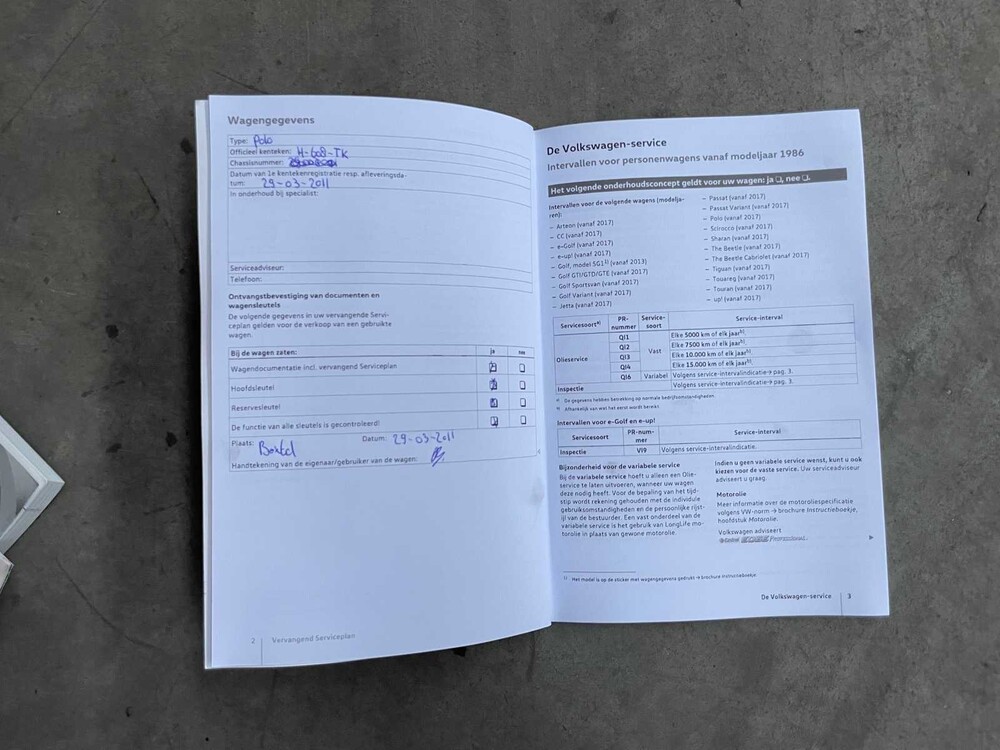 Wagengegevens
Type: Polo
Officieel kenteken: H-608-TK
Chassisnummer:
Datum van 1e kentekenregistratie resp. afleveringsda-
tum: 29-03-2011
In onderhoud bij specialist:
Serviceadviseur:
Telefoon:
Ontvangstbevestiging van documenten en
wagensleutels
De volgende gegevens in uw vervangende Servi-
ceplan gelden voor de verkoop van een gebruikte
wagen.
Bij de wagen zaten: ja nee
Wagendocumentatie incl. vervangend Serviceplan
Hoofdsleutel
Reservesleutel
De functie van alle sleutels is gecontroleerd!
Plaats: Boxtel Datum: 29-03-2011
Handtekening van de eigenaar/gebruiker van de wagen:
2 Vervangend Serviceplan
De Volkswagen-service
Intervallen voor personenwagens vanaf modeljaar 1986
Het volgende onderhoudsconcept geldt voor uw wagen: ja ❑, nee ❑.
Intervallen voor de volgende wagens (modelja-
ren):
– Arteon (vanaf 2017)
– CC (vanaf 2017)
– e-Golf (vanaf 2017)
– e-up! (vanaf 2017)
– Golf, model 5G1¹⁾ (vanaf 2013)
– Golf GTI/GTD/GTE (vanaf 2017)
– Golf Sportsvan (vanaf 2017)
– Golf Variant (vanaf 2017)
– Jetta (vanaf 2017)
– Passat (vanaf 2017)
– Passat Variant (vanaf 2017)
– Polo (vanaf 2017)
– Scirocco (vanaf 2017)
– Sharan (vanaf 2017)
– The Beetle (vanaf 2017)
– The Beetle Cabriolet (vanaf 2017)
– Tiguan (vanaf 2017)
– Touareg (vanaf 2017)
– Touran (vanaf 2017)
– up! (vanaf 2017)
Servicesoort ᵃ⁾ PR-nummer Service-soort Service-interval
Olieservice QI1 Vast Elke 5000 km of elk jaar ᵇ⁾.
QI2 Elke 7500 km of elk jaar ᵇ⁾.
QI3 Elke 10.000 km of elk jaar ᵇ⁾.
QI4 Elke 15.000 km of elk jaar ᵇ⁾.
QI6 Variabel Volgens service-intervalindicatie → pag. 3.
Inspectie Volgens service-intervalindicatie → pag. 3.
ᵃ⁾ De gegevens hebben betrekking op normale bedrijfsomstandigheden.
ᵇ⁾ Afhankelijk van wat het eerst wordt bereikt.
Intervallen voor e-Golf en e-up!
Servicesoort PR-num-mer Service-interval
Inspectie VI9 Volgens service-intervalindicatie.
Bijzonderheid voor de variabele service
Bij de variabele service hoeft u alleen een Olie-
service te laten uitvoeren, wanneer uw wagen
deze nodig heeft. Voor de bepaling van het tijd-
stip wordt rekening gehouden met de individuele
gebruiksomstandigheden en de persoonlijke rijst-
ijl van de bestuurder. Een vast onderdeel van de
variabele service is het gebruik van LongLife mo-
torolie in plaats van gewone motorolie.
Indien u geen variabele service wenst, kunt u ook
kiezen voor de vaste service. Uw serviceadviseur
adviseert u graag.
Motorolie
Meer informatie over de motoroliespecificatie
volgens VW-norm → brochure Instructieboekje,
hoofdstuk Motorolie.
Volkswagen adviseert
Castrol EDGE Professional.
¹⁾ Het model is op de sticker met wagengegevens gedrukt → brochure Instructieboekje.
De Volkswagen-service 3